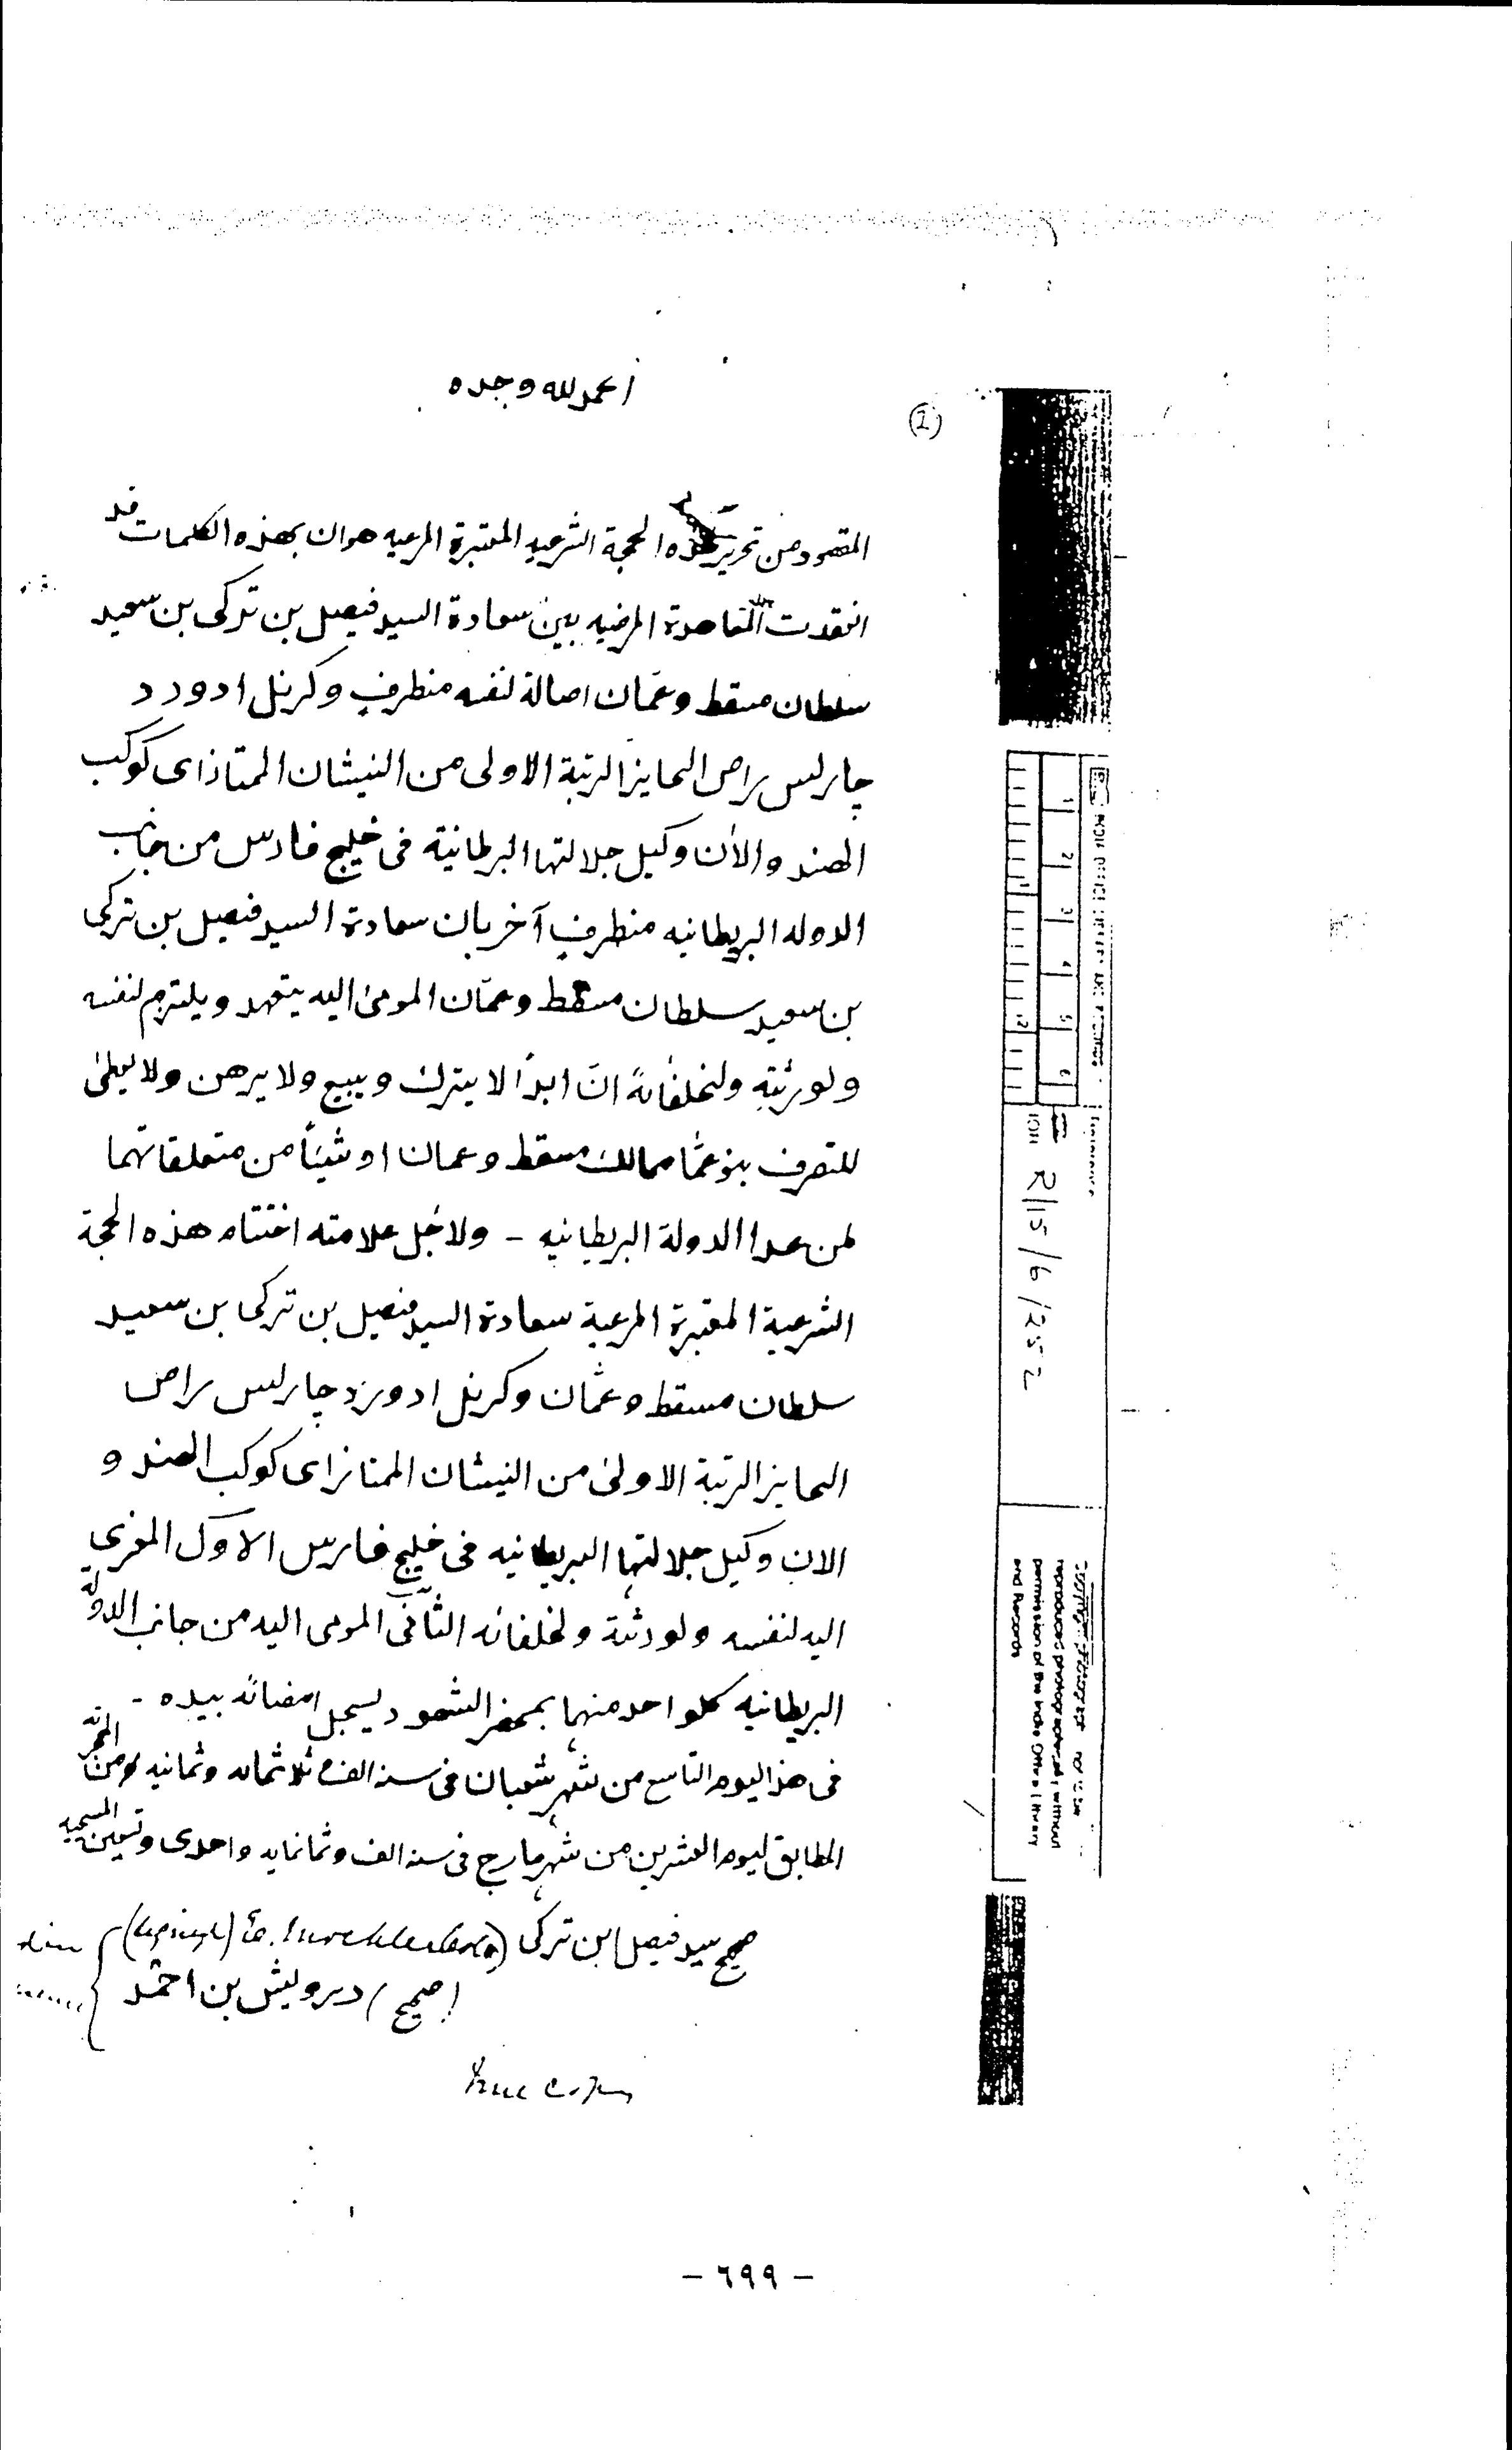 الحمد لله وحده
(1)
المقصود من تحرير هذه الحجة الشرعيه المعتبرة المرعيه هو ان بهذه الكلمات قد
انعقدت المعاهدة المرضيه بين سعادة السيد فيصل بن تركى بن سعيد
سلطان مسقط وعمان اصالة لنفسه منطرفٍ وكرنل ادورد
چارلس راص الحايز الرتبة الاولى من النيشان الممتاز اى كوكب
الهند والآن وكيل جلالتها البرطانية فى خليج فارس من جانب
الدوله البريطانيه منطرفٍ آخر بان سعادة السيد فيصل بن تركى
بن سعيد سلطان مسقط وعمّان المومىٰ اليه يتعهد ويلتزم لنفسه
ولورثته ولخلفائه انّ ابداً لا يترك ويبيع ولا يرهن ولا يعطىٰ
للتصرف بنوعٍ ما ممالك مسقط وعمان او شيئاً من متعلقاتهما
لمن عدا الدولة البريطانيه - ولاجل علامته اختتام هذه الحجة
الشرعية المعتبرة المرعية سعادة السيد فيصل بن تركى بن سعيد
سلطان مسقط وعمّان وكرنل ادورد چارلس راص
الحايز الرتبة الاولىٰ من النيشان الممتاز اى كوكب الهند و
الان وكيل جلالتها البريطانيه فى خليج فارس الاوّل المغرى
اليه لنفسه ولورثته ولخلفائه الثانى المومى اليه من جانب الدولة
البريطانيه كلو احد منهما بمحضر الشهود ليسجل امضائه بيده -
فى هذا اليوم التاسع من شهر شعبان فى سنه الف ثلاثمائه وثمانيه من الهجرته
المطابق ليوم العشرين من شهر مارچ فى سنه الف وثمانمايه واحدى وتسعين المسيحيه
صحيح سيد فيصل ابن تركى
(صحيح) درويش بن احمد
true copy
Reference
IOR R/15/6/252
reproduced photographically without
permission of the India Office Library
and Records
- ٦٩٩ -